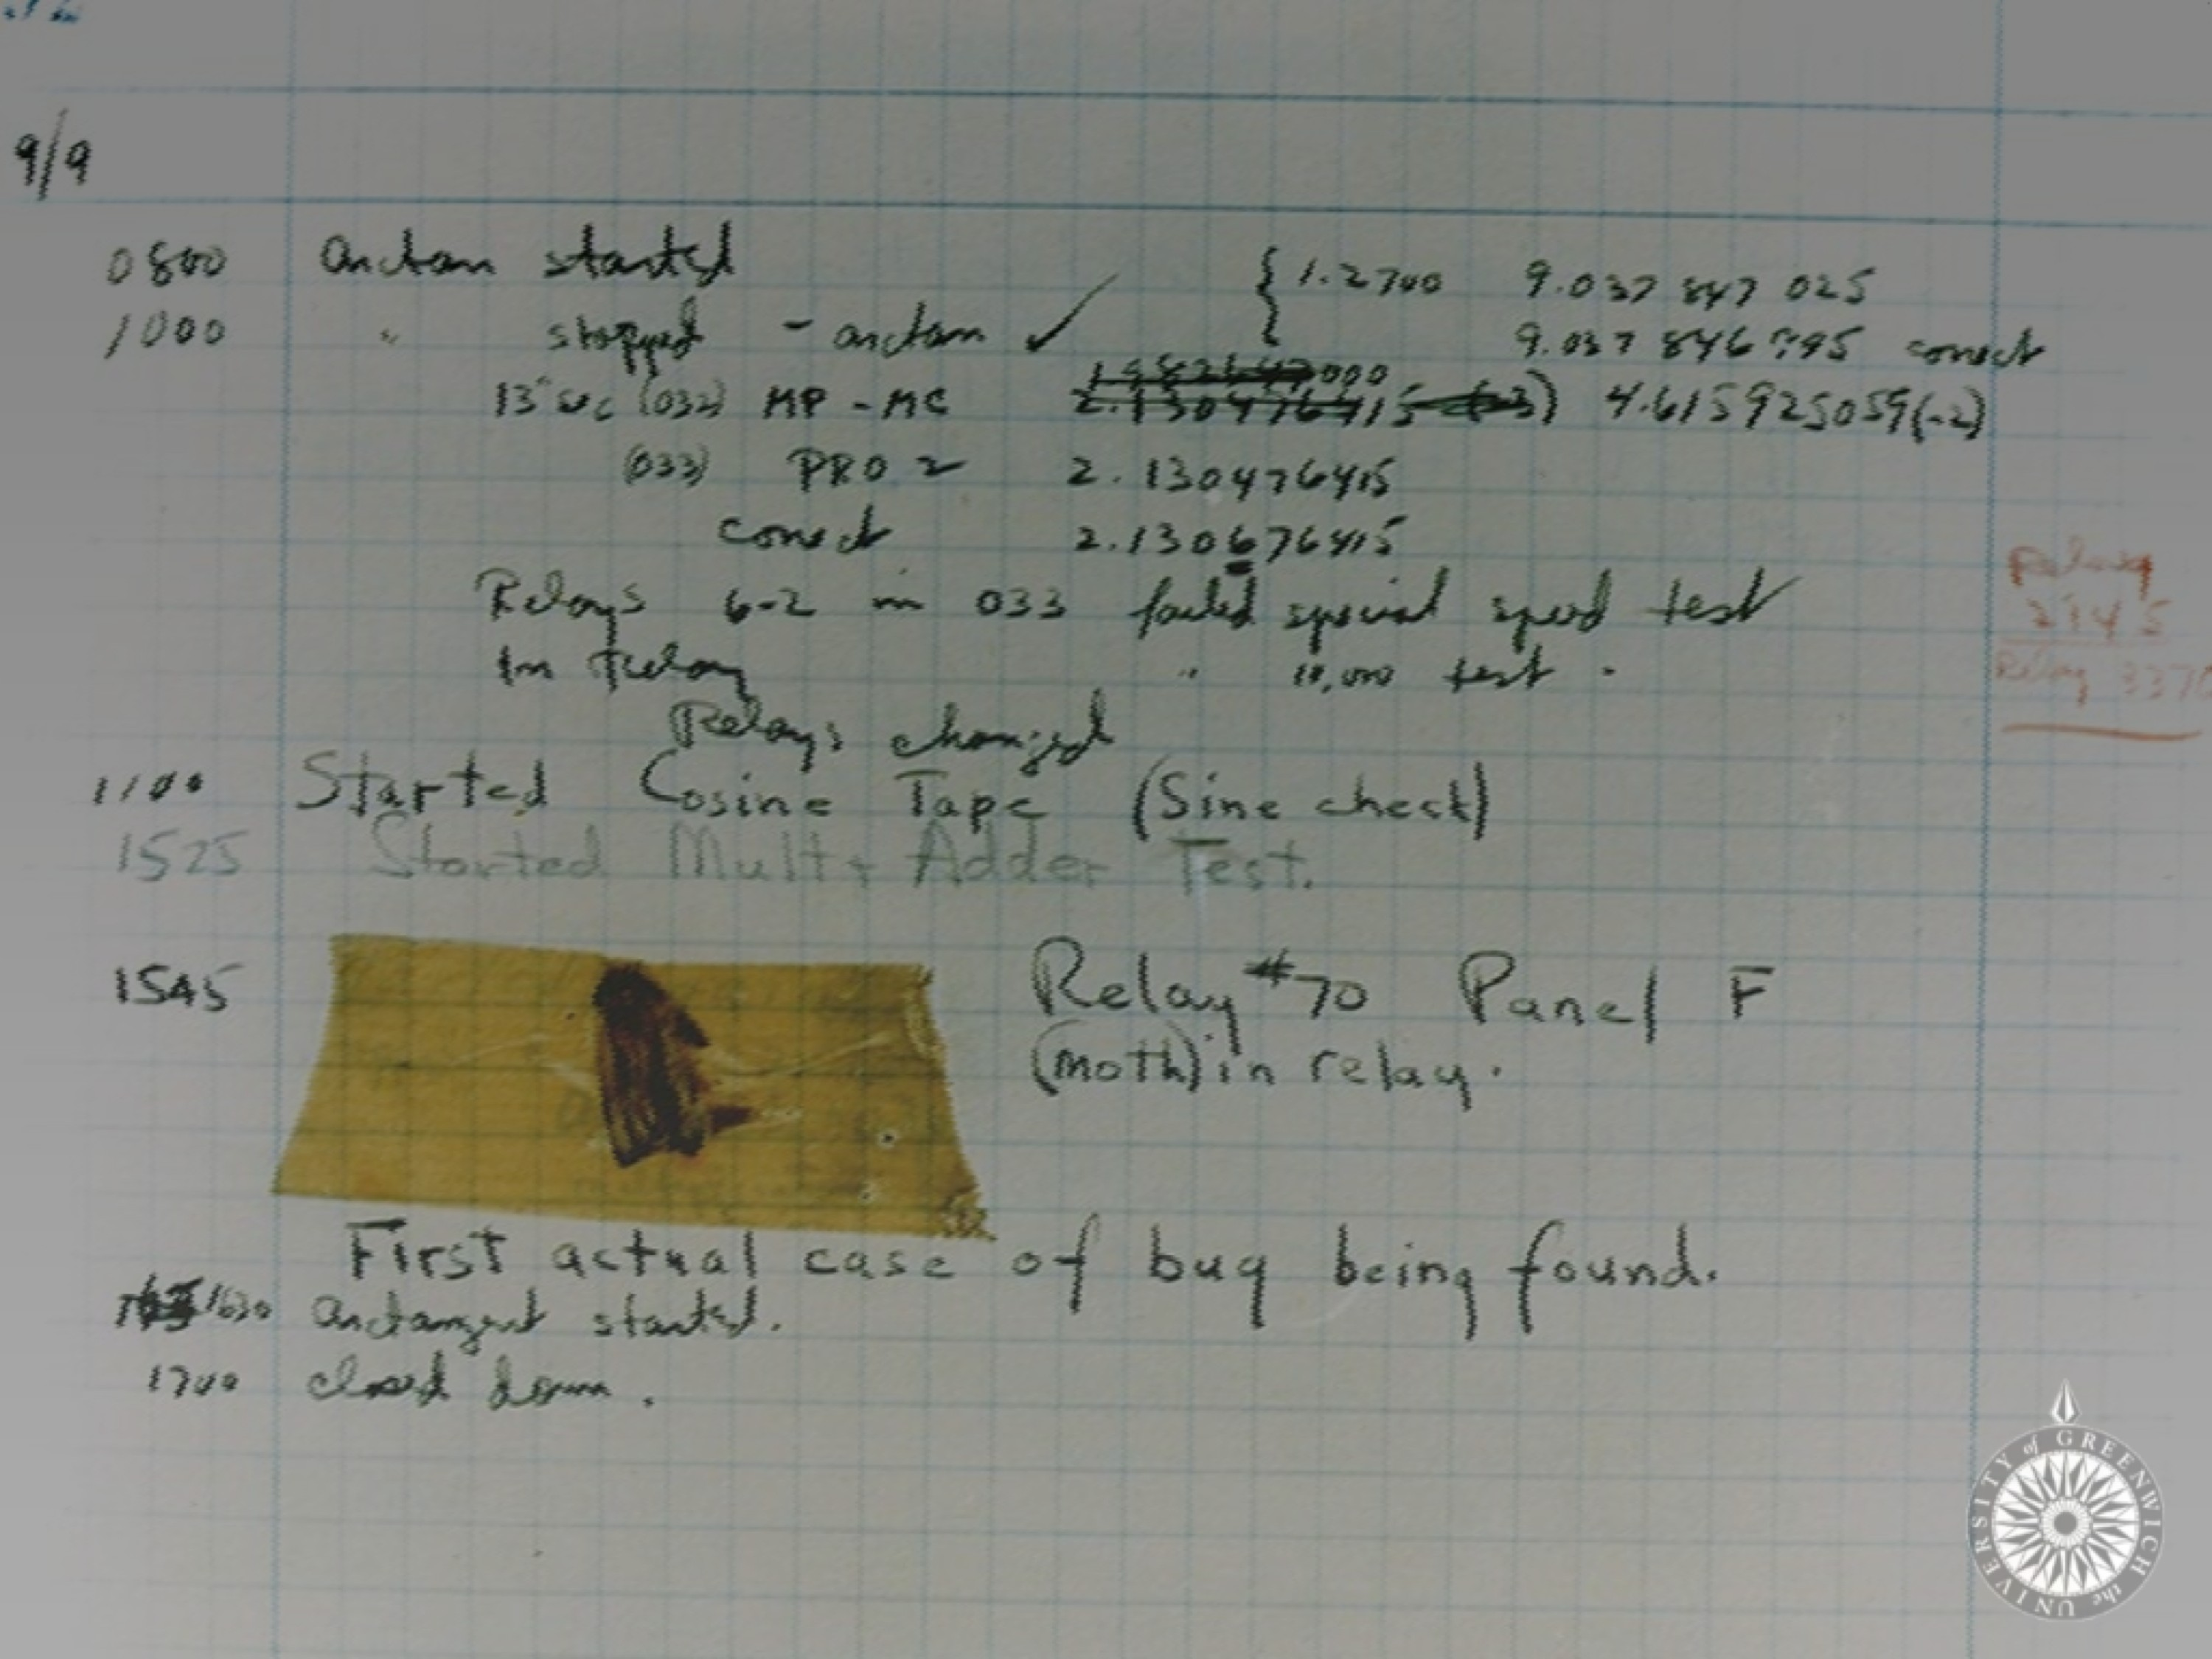 9/9
0800 Antan started { 1.2700 9.037 847 025
1000 " stopped - antan ✓ 9.037 846 795 conect
13" uc (032) MP - MC 2.130476415 (-3) 4.615925059(-2)
(033) PRO 2 2.130476415
conect 2.130676415
Relays 6-2 in 033 failed special speed test
In Relay " 10,000 test .
Relay
2145
Relay 337
Relays changed
1100 Started Cosine Tape (Sine check)
1525 Started Mult+ Adder Test.
1545 Relay #70 Panel F
(moth) in relay.
First actual case of bug being found.
1630 antangent started.
1700 closed down.
UNIVERSITY of GREENWICH the